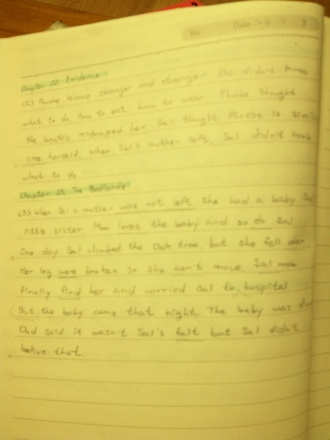 No. Date
Chapter 22: Evidence
(2) Phebe became stranger and stranger. She didn't know
what to do, how to eat, how to wear. Phebe thought
the lunatic kidnaped her. Sal thought Phebe is
like herself. When Sal's mother left, Sal didn't know
what to do.
Chapter 23: The Badlands
(3) When Sal's mother was not left. She had a baby, Sal
little sister. Mom loves the baby and so do Sal.
One day Sal climbed the Oak tree, but she fell over
Her leg were broken so she can't move. Sal mom
finally find her and carried Sal to hospital
But the baby came that night. The baby was
Dad said it wasn't Sal's falt but Sal didn't
belive that.